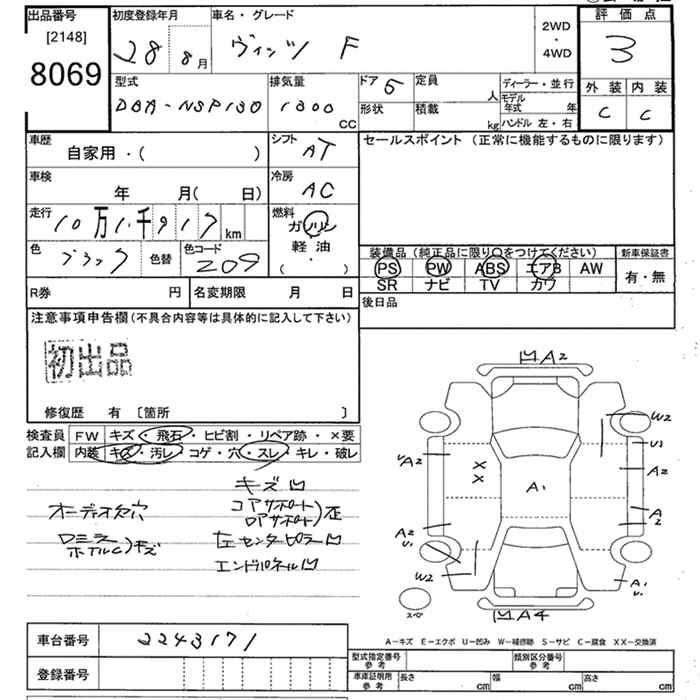 出品番号 初度登録年月 車名・グレード 2WD・4WD 評価点
[2148]
8069
28 8月 ヴィッツ F 3
型式 排気量 ドア 5 定員 人 ディーラー・並行 外装 内装
DBA-NSP130 1300 CC 形状 積載 kg モデル年式 年 C C
ハンドル 左・右
車歴 シフト セールスポイント (正常に機能するものに限ります)
自家用・( ) AT
車検 冷房
年 月( 日) AC
走行 燃料
10万1千917km ガソリン
軽油
( ・ )
色 ブラック 色替 色コード 209
装備品 (純正品に限り○をつけてください) 新車保証書
PS PW ABS エアB AW 有・無
SR ナビ TV カワ
R券 円 名変期限 月 日 後日品
注意事項申告欄(不具合内容等は具体的に記入して下さい)
初出品
修復歴 有 〔箇所 〕
検査員 FW キズ・飛石・ヒビ割・リペア跡・×要
記入欄 内装 キズ・汚レ・コゲ・穴・スレ・キレ・破レ
キズ凹
オーディオ欠穴
コアサポート
ロアサポート)歪
ロミラー
ホイルC)キズ
左センターピラー凹
エンドパネル凹
凹A2
W2
U1
A2
A2
XX
A1
A2
A2
U1
W2
A1
U1
スペ
凹A4
A-キズ E-エクボ U-凹み W-補修跡 S-サビ C-腐食 XX-交換済
車台番号 2243171
登録番号
型式指定番号 参考 類別区分番号 参考
車庫証明用 参考 長さ cm 幅 cm 高さ cm